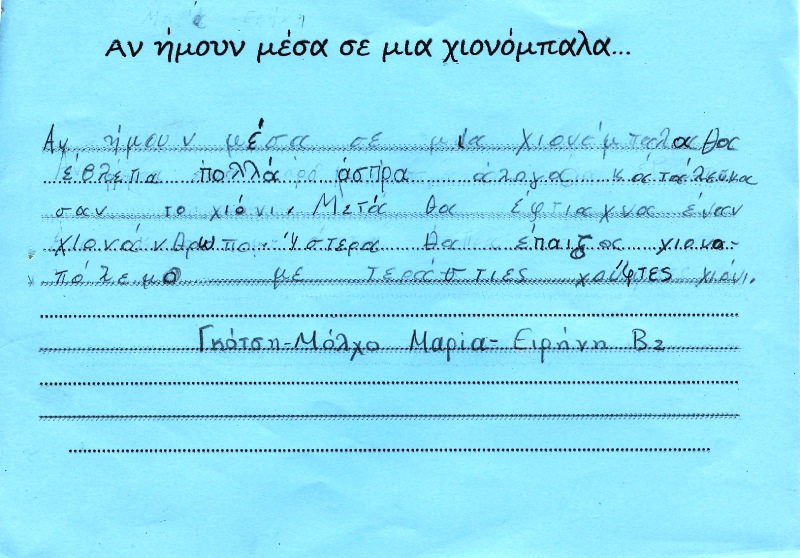 Αν ήμουν μέσα σε μια χιονόμπαλα...
Αν ήμουν μέσα σε μια χιονόμπαλα θα
έβλεπα πολλά άσπρα άλογα κάτάλευκα
σαν το χιόνι. Μετά θα έφτιαχνα έναν
χιονάνθρωπο. Ύστερα θα έπαιζα χιονο-
πόλεμο με τεράστιες χούφτες χιόνι.
Γκότση-Μόλχο Μαρία-Ειρήνη Β2